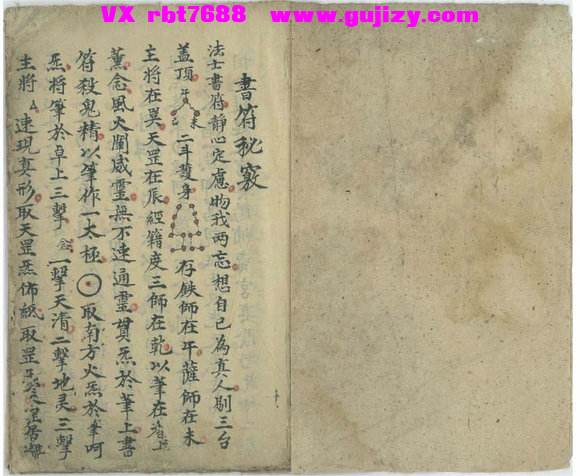 VX rbt7688 www.gujizy.com
書符秘竅
法士書符靜心定慮物我两忘想自己為真人剔三台
盖頂 午 人 己 未 二斗護身 存鉄師在午薩師在未
主將在巽天罡在辰經籍度三師在乾以筆在香上
薰念風火闔威靈無不速通靈貫炁於筆上書
符殺鬼精以筆作一太極取南方火炁於筆呵
炁將筆於卓上三擊念一擊天清二擊地灵三擊
主將速現真形取天罡炁佈紙取罡